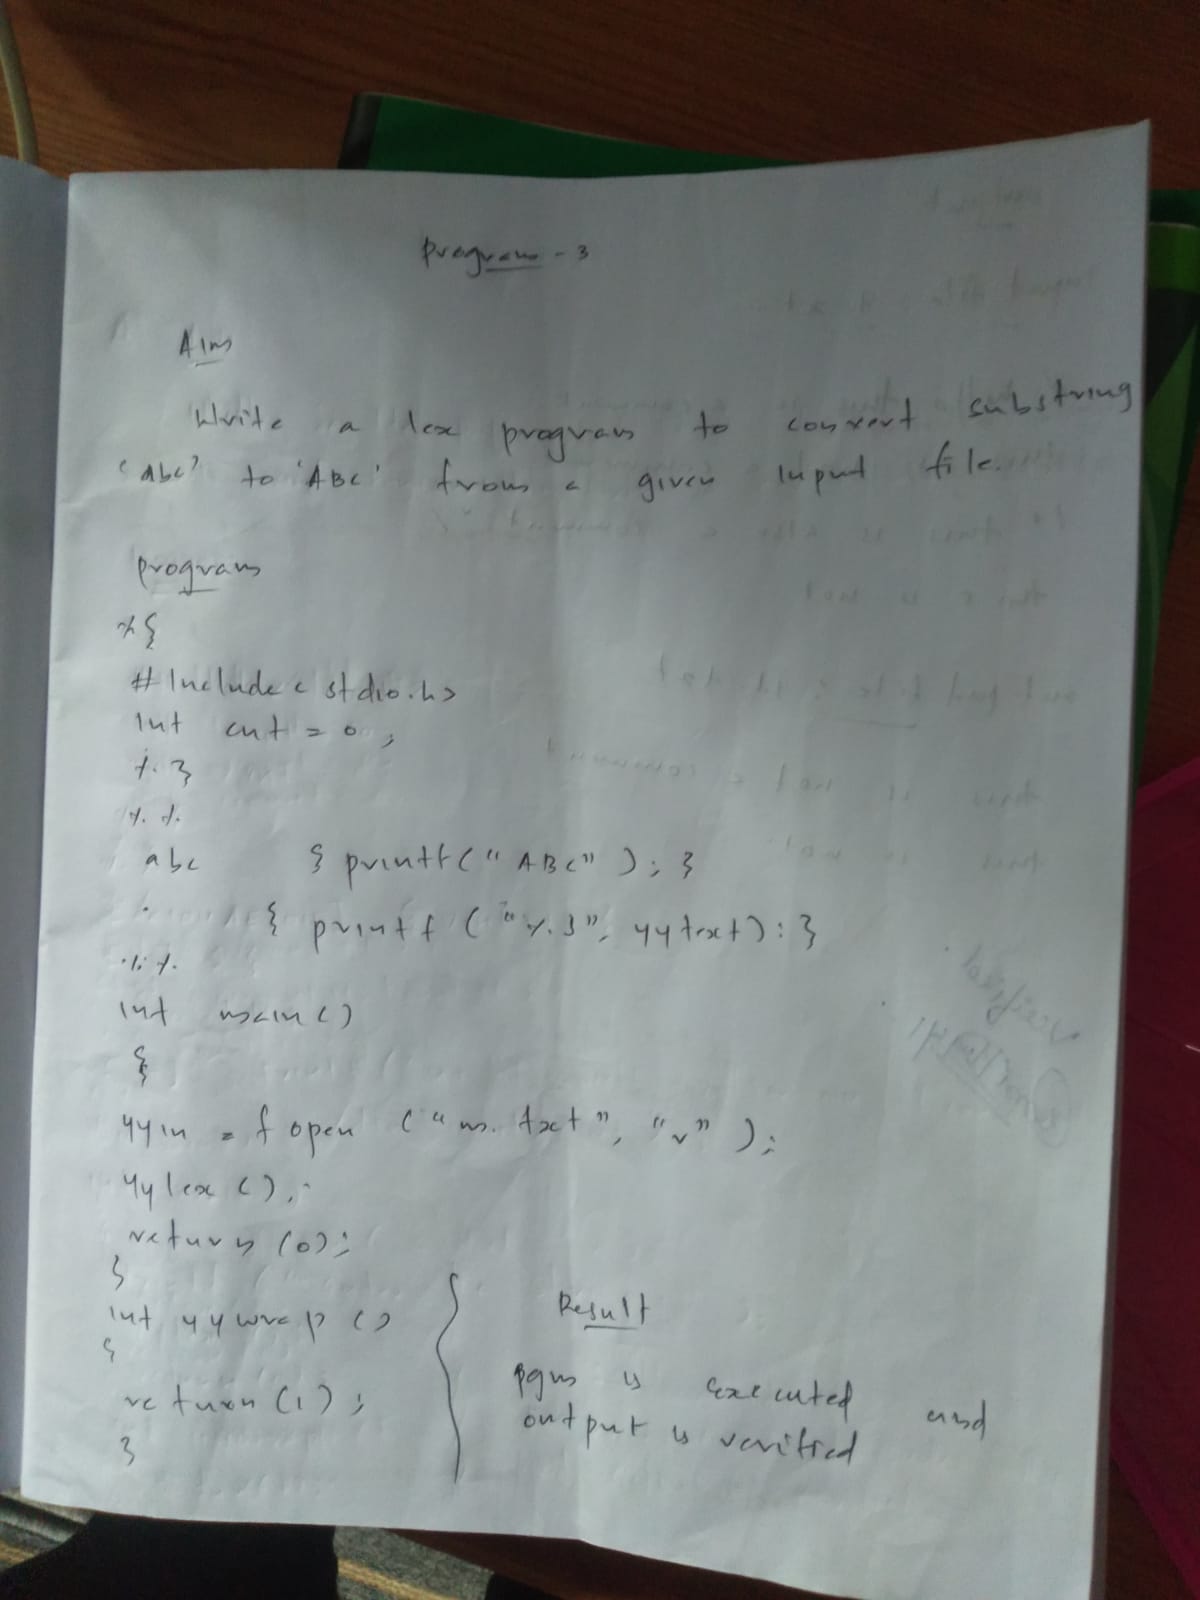 Program - 3
Aim
Write a lex program to convert substring
'abc' to 'ABC' from a given input file.
program
%{
#include<stdio.h>
int cnt = 0;
%}
%%
abc { printf("ABC"); }
. { printf("%s", yytext); }
%%
int main()
{
yyin = fopen("m.txt", "r");
yylex();
return(0);
}
int yywrap()
{
return(1);
}
Result
pgm is executed and
output is verified